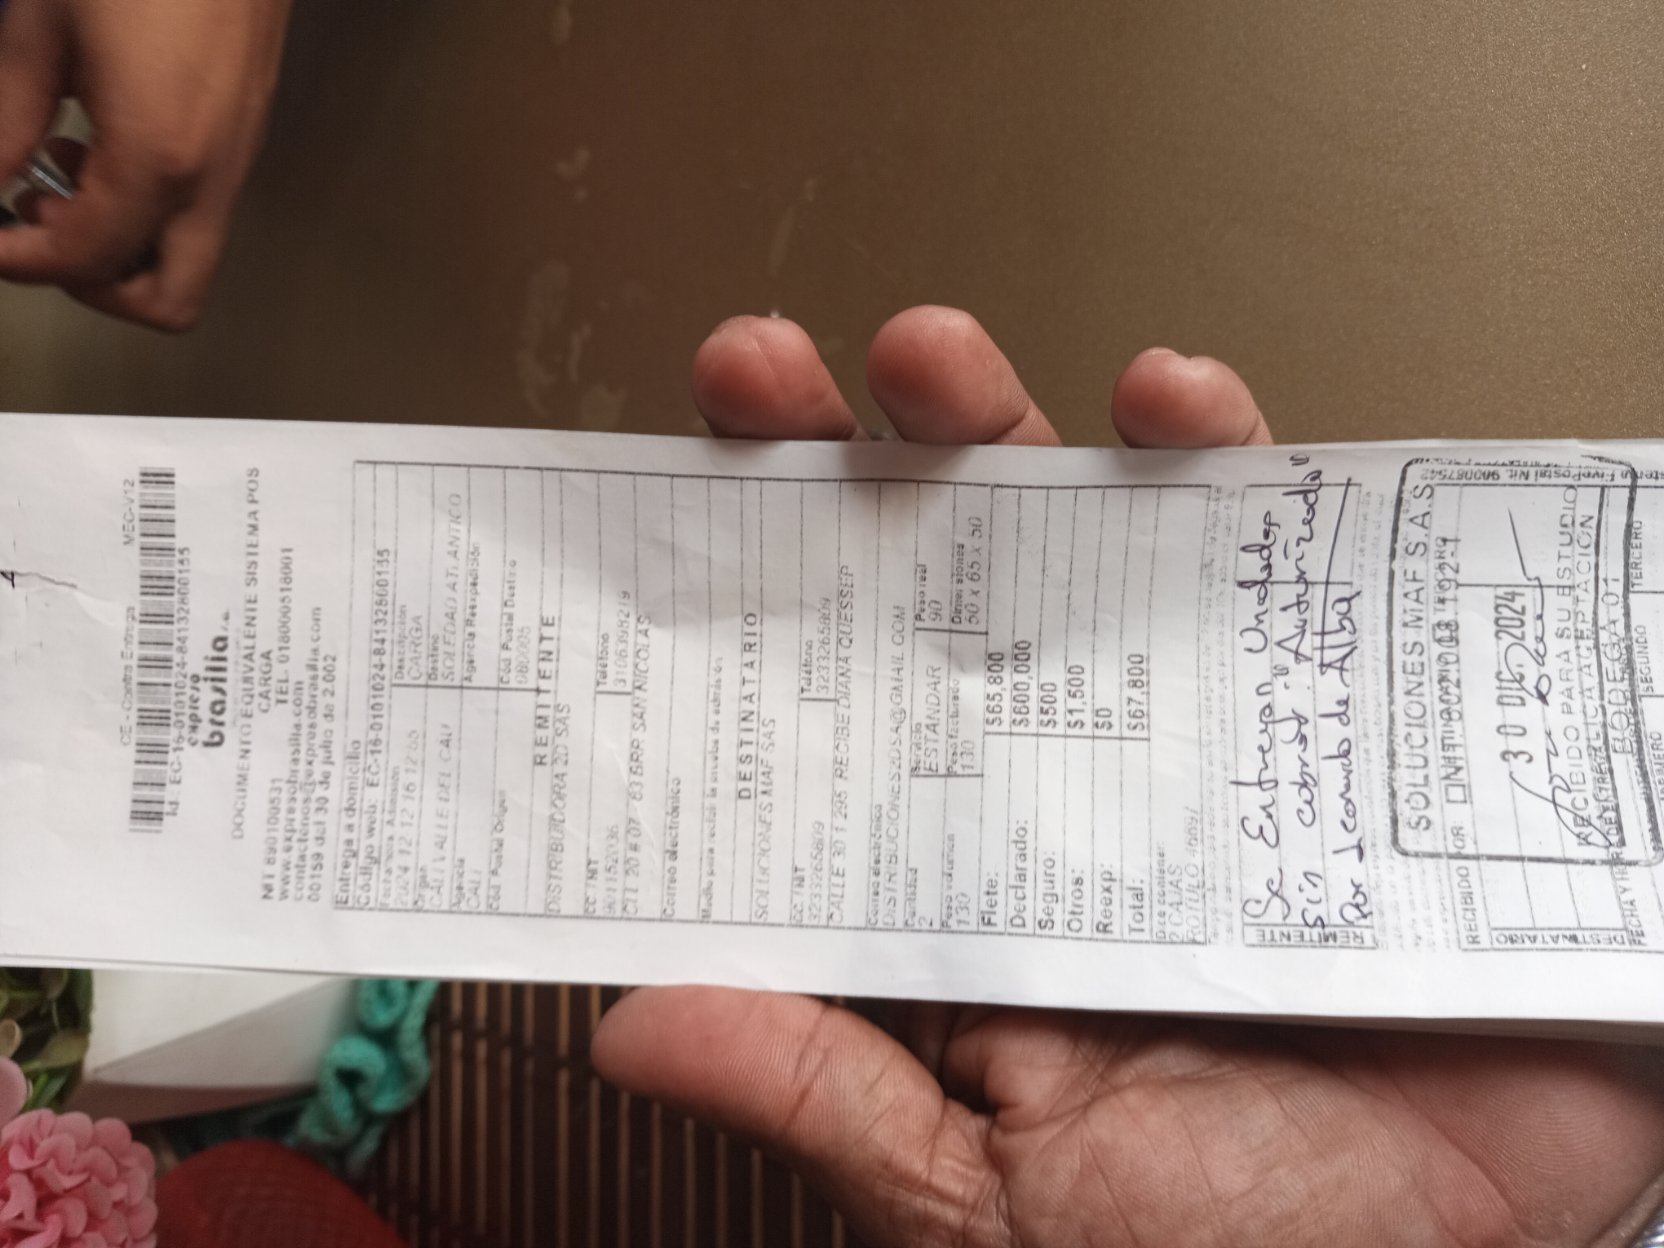 4
CE - Contra Entrega MEC-V12
Id. EC-16-0101024-84132800155
expreso
brasilia s.a.
DOCUMENTO EQUIVALENTE SISTEMA POS
CARGA
NIT 890100531 TEL. 018000518001
www.expresobrasilia.com
contactenos@expresobrasilia.com
00159 del 30 de julio de 2.002
Entrega a domicilio
Código web: EC-16-0101024-84132800155
Fecha/Hora Admisión Descripción
2024 12 12 16 12:55 CARGA
Origen Destino
CALI VALLE DEL CAU SOLEDAD ATLANTICO
Agencia Agencia Reexpedición
CALI
Cód. Postal Origen Cód. Postal Destino
080005
REMITENTE
DISTRIBUIDORA 2D SAS
CC / NIT Teléfono
901152036 3106398219
CLL 20 # 07 63 BRR SAN NICOLAS
Correo electrónico
DESTINATARIO
SOLUCIONES MAF SAS
CC / NIT Teléfono
3233265809 3233265809
CALLE 30 1 295 RECIBE DIANA QUESSEP
Correo electrónico
DISTRIBUCIONES2DSA@GMAIL.COM
Cantidad Servicio Peso real
2 ESTANDAR 90
Peso volúmico Peso facturado Dimensiones
130 130 50 X 65 X 50
Flete: $65,800
Declarado: $600,000
Seguro: $500
Otros: $1,500
Reexp: $0
Total: $67,800
Dice contener:
2 CAJAS
ROTULO 46691
REMITENTE
Se Entregan Unidades
sin cobrar. "Autorizado"
Por Leonardo de Alba
SOLUCIONES MAF S.A.S
NIT: 802.008.192-1
RECIBIDO POR:
30 DIC. 2024
RECIBIDO PARA SU ESTUDIO
NO IMPLICA ACEPTACION
BODEGA 01
DESTINATARIO
PRIMERO SEGUNDO TERCERO